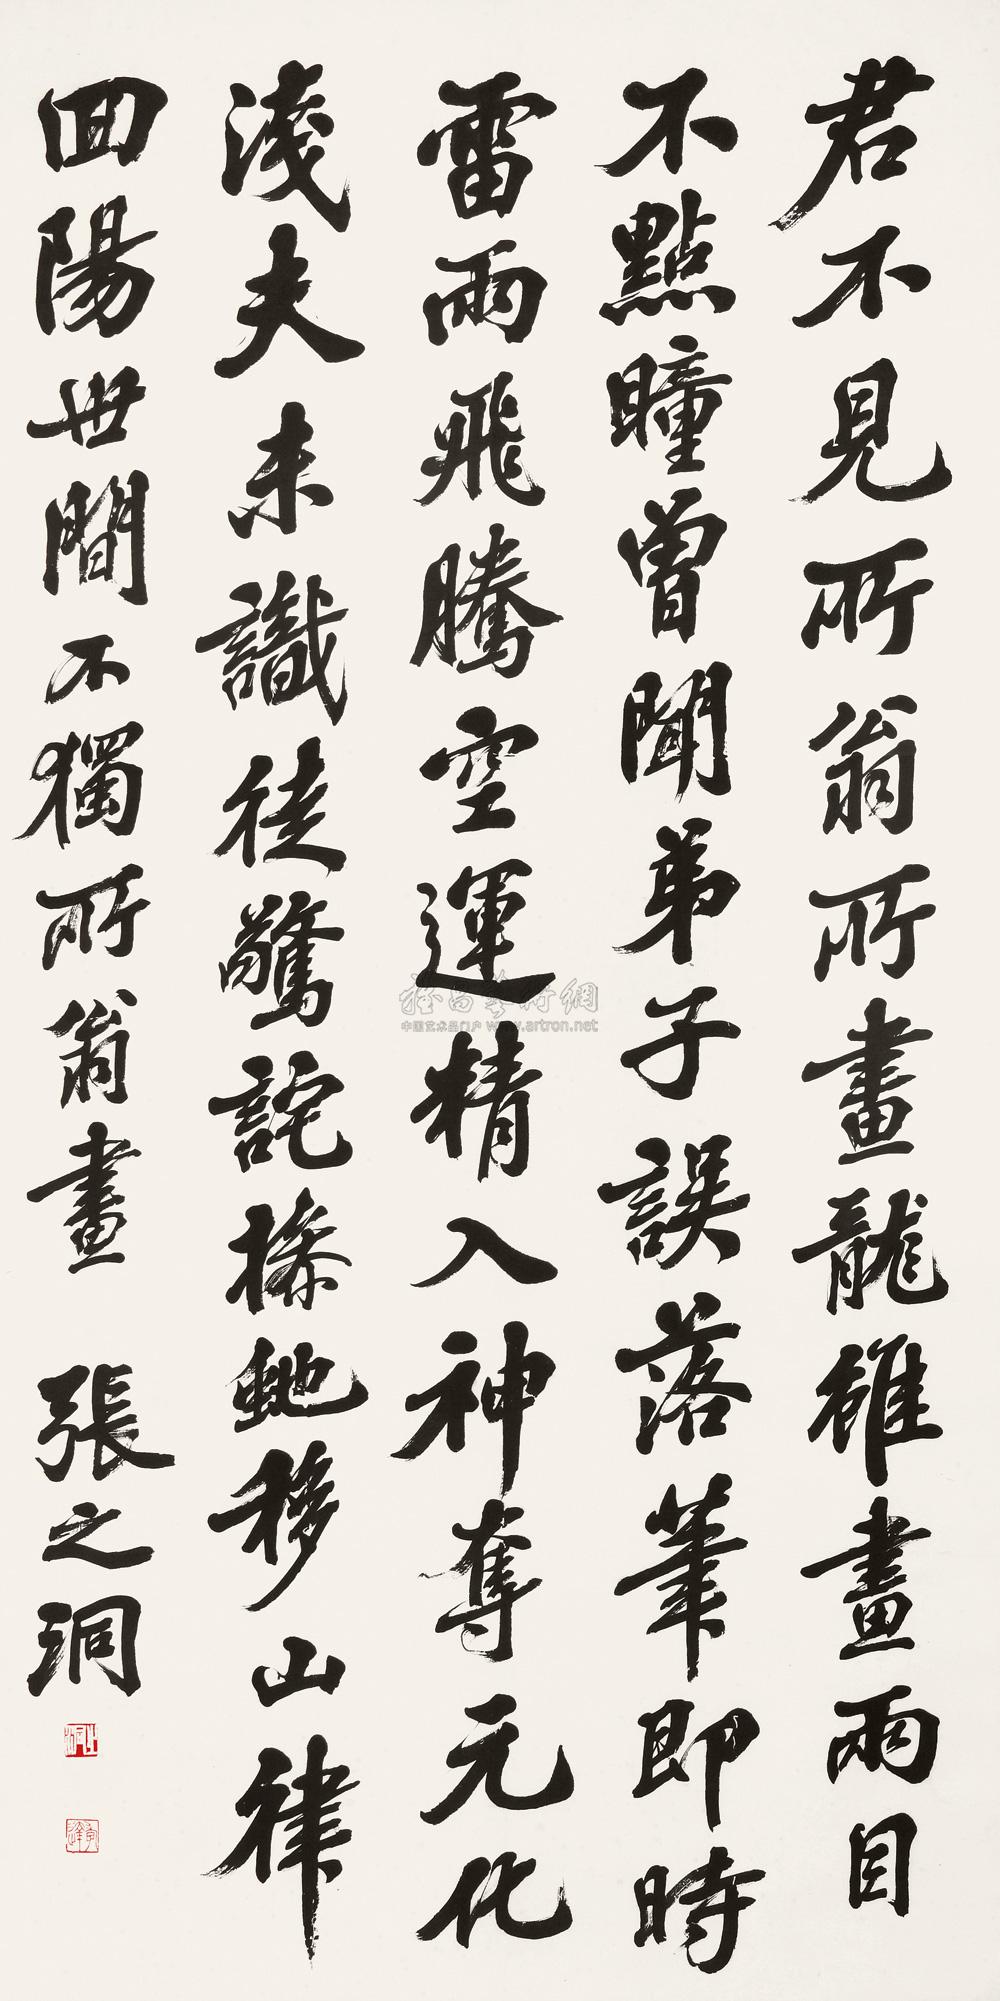 君不見所翁所畫龍雖畫兩目
不點瞳曾聞弟子誤落筆即時
雷雨飛騰空運精入神奪元化
淺夫未識徒驚詫操虵移山律
回陽世間不獨所翁畫
張之洞
中国艺术品门户 www.artron.net